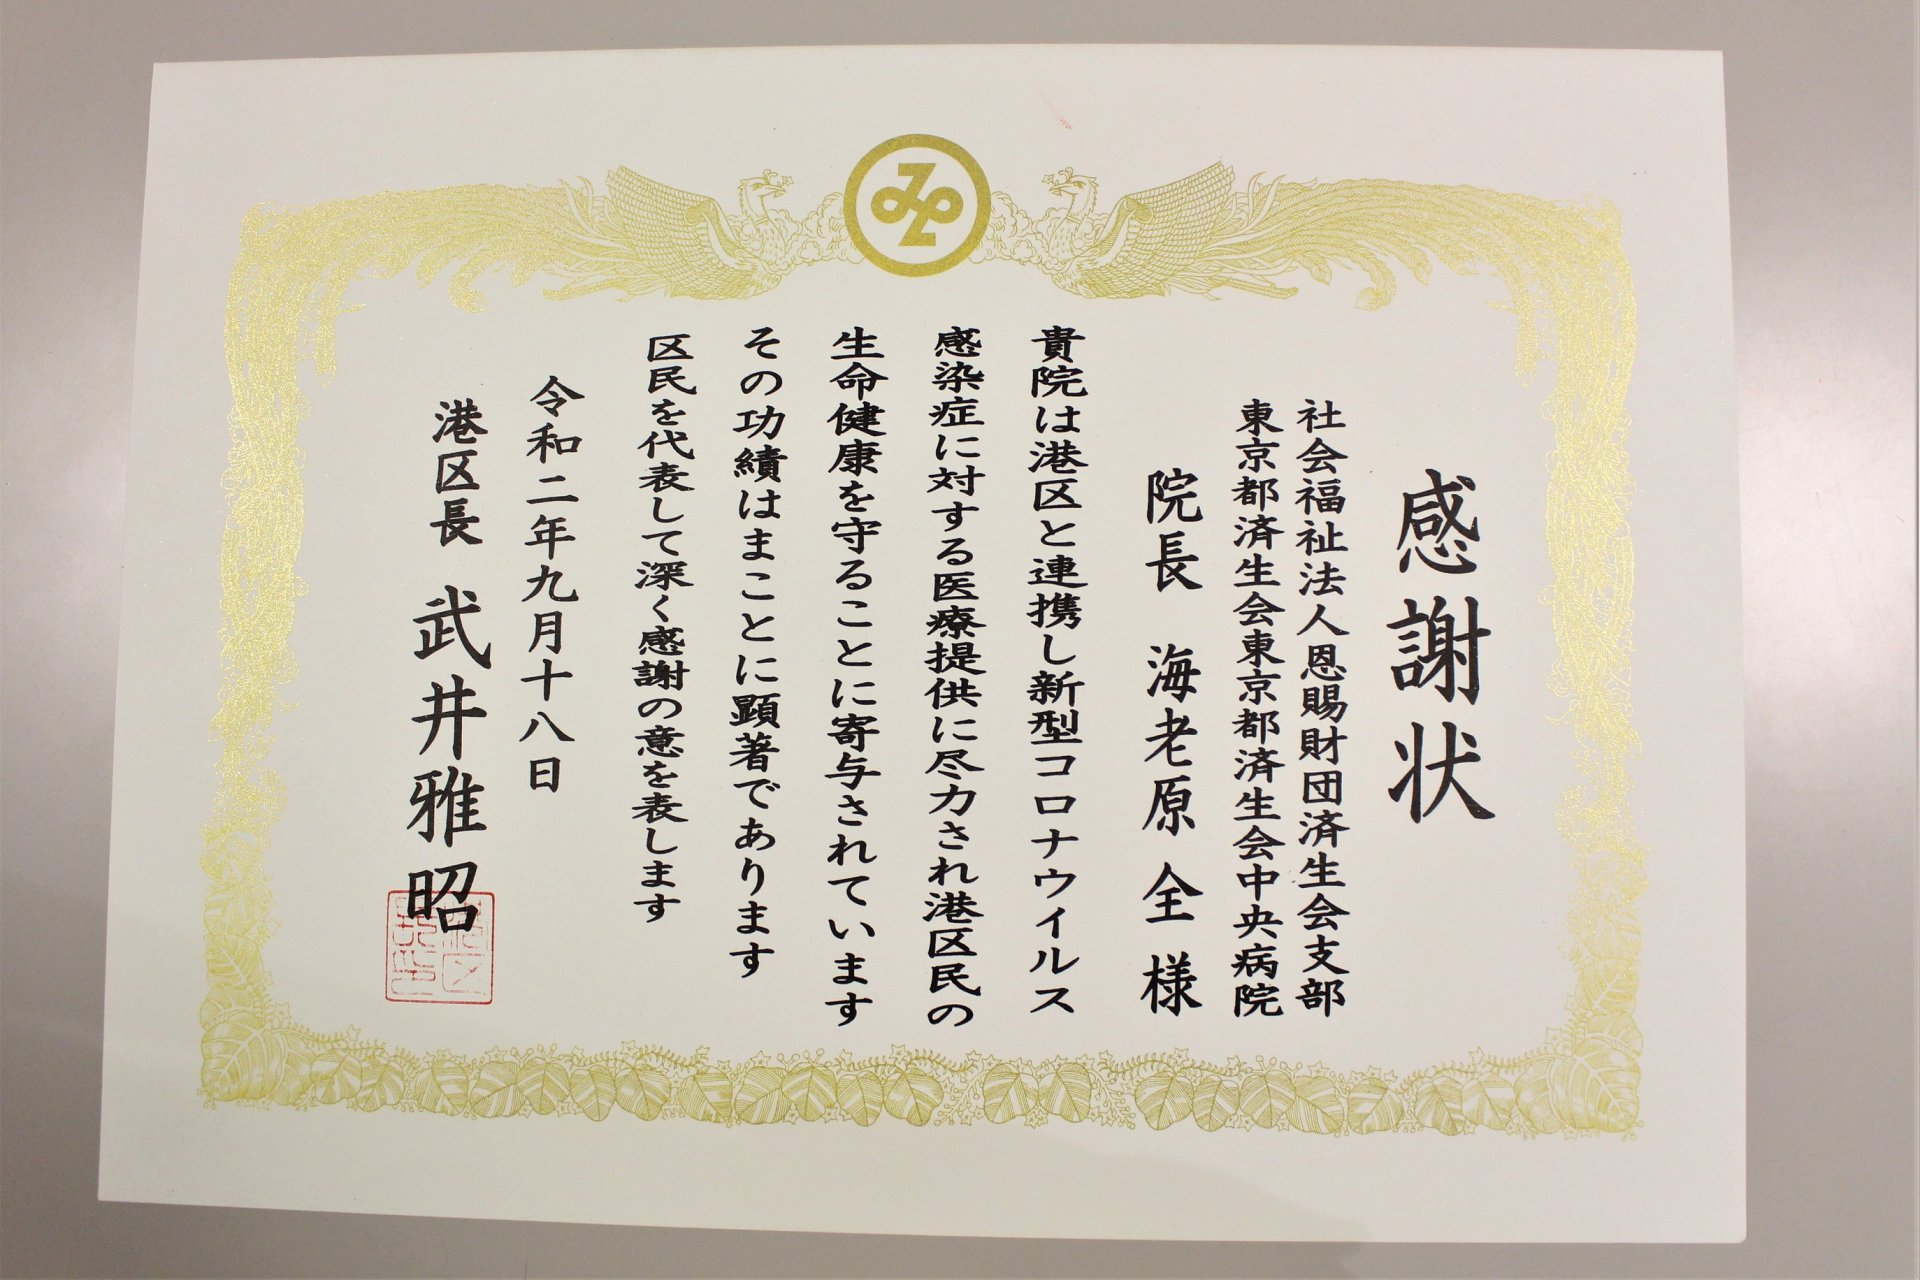 感謝状
社会福祉法人恩賜財団済生会支部
東京都済生会東京都済生会中央病院
院長 海老原 全 様
貴院は港区と連携し新型コロナウイルス
感染症に対する医療提供に尽力され港区民の
生命健康を守ることに寄与されています
その功績はまことに顕著であります
区民を代表して深く感謝の意を表します
令和二年九月十八日
港区長 武井雅昭